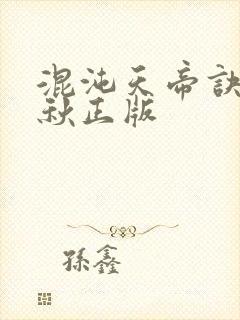 混沌天帝訣
秋正版
孫鑫